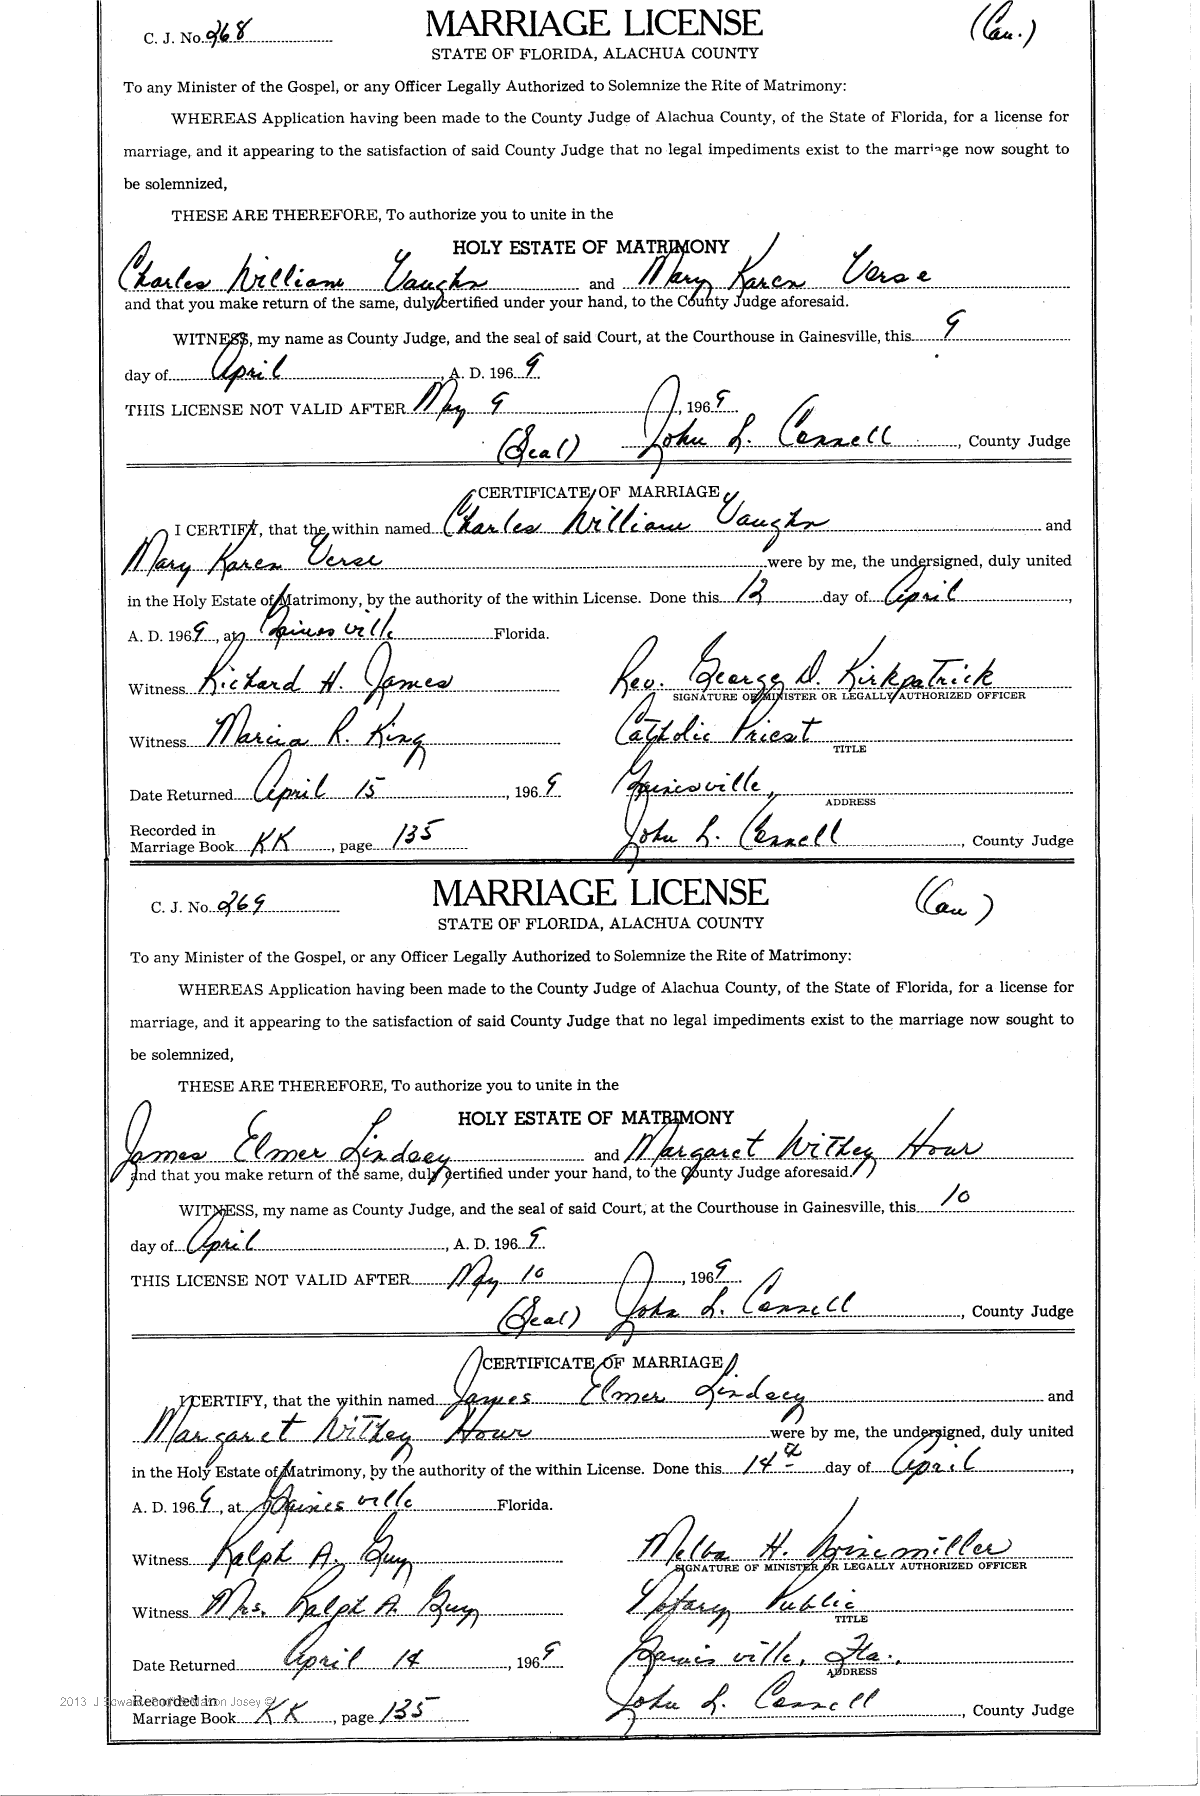 C. J. No. 268
MARRIAGE LICENSE
(Cau.)
STATE OF FLORIDA, ALACHUA COUNTY
To any Minister of the Gospel, or any Officer Legally Authorized to Solemnize the Rite of Matrimony:
WHEREAS Application having been made to the County Judge of Alachua County, of the State of Florida, for a license for
marriage, and it appearing to the satisfaction of said County Judge that no legal impediments exist to the marriage now sought to
be solemnized,
THESE ARE THEREFORE, To authorize you to unite in the
HOLY ESTATE OF MATRIMONY
Charles William Vaughn and Mary Karen Verse
and that you make return of the same, duly certified under your hand, to the County Judge aforesaid.
WITNESS, my name as County Judge, and the seal of said Court, at the Courthouse in Gainesville, this 9
day of April, A. D. 1969
THIS LICENSE NOT VALID AFTER May 9, 1969
(Seal) John L. Connell, County Judge
CERTIFICATE OF MARRIAGE
I CERTIFY, that the within named Charles William Vaughn and
Mary Karen Verse were by me, the undersigned, duly united
in the Holy Estate of Matrimony, by the authority of the within License. Done this 12 day of April,
A. D. 1969, at Gainesville Florida.
Witness Richard H. James
Rev. George D. Kirkpatrick
SIGNATURE OF MINISTER OR LEGALLY AUTHORIZED OFFICER
Witness Marcia R. King
Catholic Priest
TITLE
Date Returned April 15, 1969
Gainesville,
ADDRESS
Recorded in
Marriage Book KK, page 135
John L. Connell, County Judge
C. J. No. 269
MARRIAGE LICENSE
(Cau)
STATE OF FLORIDA, ALACHUA COUNTY
To any Minister of the Gospel, or any Officer Legally Authorized to Solemnize the Rite of Matrimony:
WHEREAS Application having been made to the County Judge of Alachua County, of the State of Florida, for a license for
marriage, and it appearing to the satisfaction of said County Judge that no legal impediments exist to the marriage now sought to
be solemnized,
THESE ARE THEREFORE, To authorize you to unite in the
HOLY ESTATE OF MATRIMONY
James Elmer Lindsey and Margaret Withey Hour
and that you make return of the same, duly certified under your hand, to the County Judge aforesaid.
WITNESS, my name as County Judge, and the seal of said Court, at the Courthouse in Gainesville, this 10
day of April, A. D. 1969
THIS LICENSE NOT VALID AFTER May 10, 1969
(Seal) John L. Connell, County Judge
CERTIFICATE OF MARRIAGE
I CERTIFY, that the within named James Elmer Lindsey and
Margaret Withey Hour were by me, the undersigned, duly united
in the Holy Estate of Matrimony, by the authority of the within License. Done this 14th day of April,
A. D. 1969, at Gainesville Florida.
Witness Ralph A. Guy
Melba H. Winemiller
SIGNATURE OF MINISTER OR LEGALLY AUTHORIZED OFFICER
Witness Mrs. Ralph A. Guy
Notary Public
TITLE
Date Returned April 14, 1969
Gainesville, Fla.,
ADDRESS
2013 J Josey ©
Recorded in
Marriage Book KK, page 135
John L. Connell, County Judge